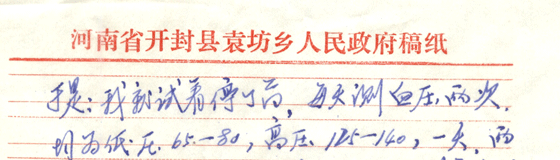 河南省开封县袁坊乡人民政府稿纸
于是:我就试着停了药,每天测血压两次.
均为低压65—80,高压125—140,一天,两